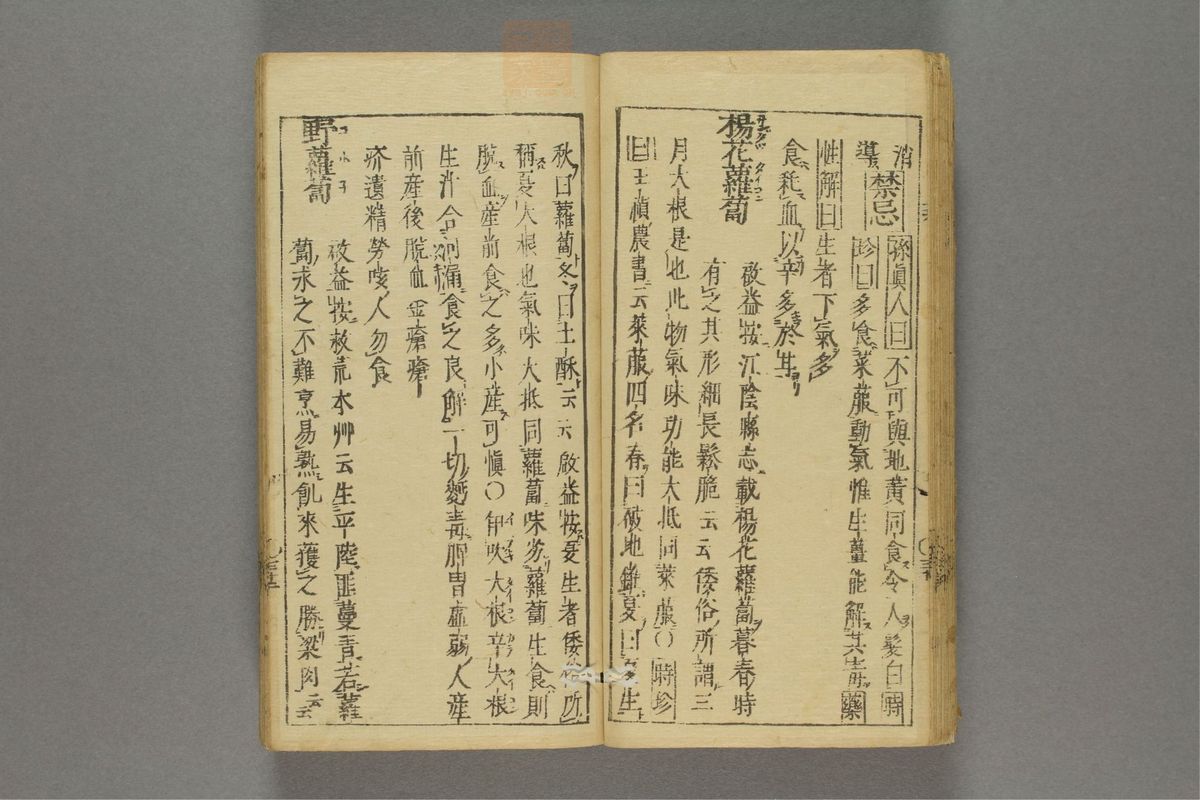 消 禁忌 孫眞人曰 不可與地黄同食令人髮白 時
導 珍曰 多食萊菔動氣惟生薑能解其毒 藥
性解曰 生者下氣多
食耗血以辛多於甘
楊花蘿蔔 啟益按江陰縣志載楊花蘿蔔暮春時
有之其形細長鬆脆云云倭俗所謂三
月大根是也此物氣味功能大抵同萊菔〇 時珍
曰 王禎農書云萊菔四名春曰破地錐夏曰夏生
秋曰蘿蔔冬曰土酥云云啟益按夏生者倭俗所
稱夏大根也氣味大抵同蘿蔔味劣蘿蔔生食則
脫血産前食之多小産可愼〇伊吹大根辛大根
生汁合 食之良解一切麪毒脾胃虛弱人産
前産後脫血金瘡瘡
疥遺精勞咳人勿食
野蘿蔔 啟益按救荒本艸云生平陸匪蔓青若蘿
蔔求之不難烹易熟飢來獲之勝粱肉云云